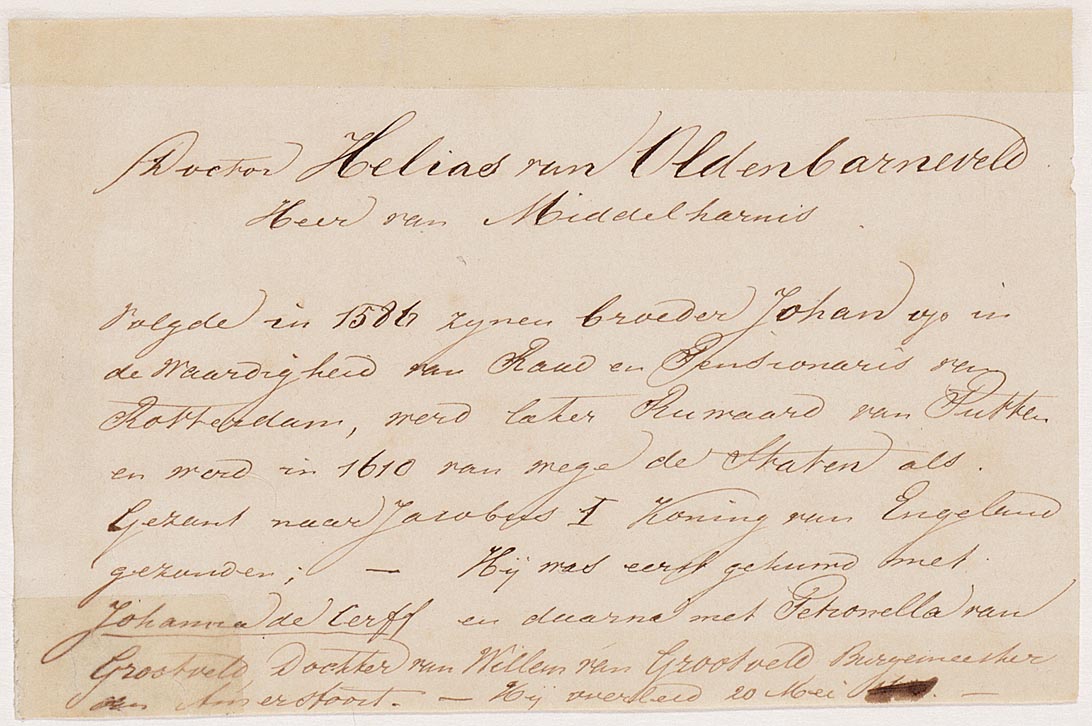 Doctor Helias van Oldenbarneveld
Heer van Middelharnis
Volgde in 1586 zynen broeder Johan op in
de Waardigheid van Raad en Pensionaris van
Rotterdam, werd later Ruwaard van Putten
en werd in 1610 van wege de Staten als
Gezant naar Jacobus I Koning van Engeland
gezonden; — Hij was eerst gehuwd met
Johanna de Cerff en daarna met Petronella van
Grootveld Dochter van Willem van Grootveld Burgemeester
van Amersfoort. — Hij overleed 20 Mei —